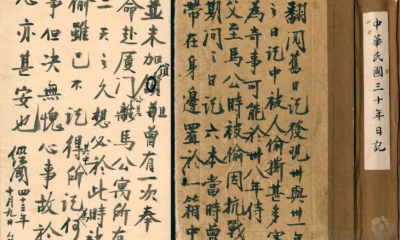 中華民國三十年日記
翻閱舊日記發現卅與卅一年
之日記中被人偷撕甚多實
為奇事可能於卅八年侍
父至馬公時被偷因抗戰
期間之日記六本當時曾
帶在身邊置於箱中
並未加鎖且曾有一次奉
命赴廈門離馬公寓所有
一天之久想必於此時被
偷雖已不記得所記何
事但決無愧心事故於
心亦甚安也
經國四十三年
十月九日